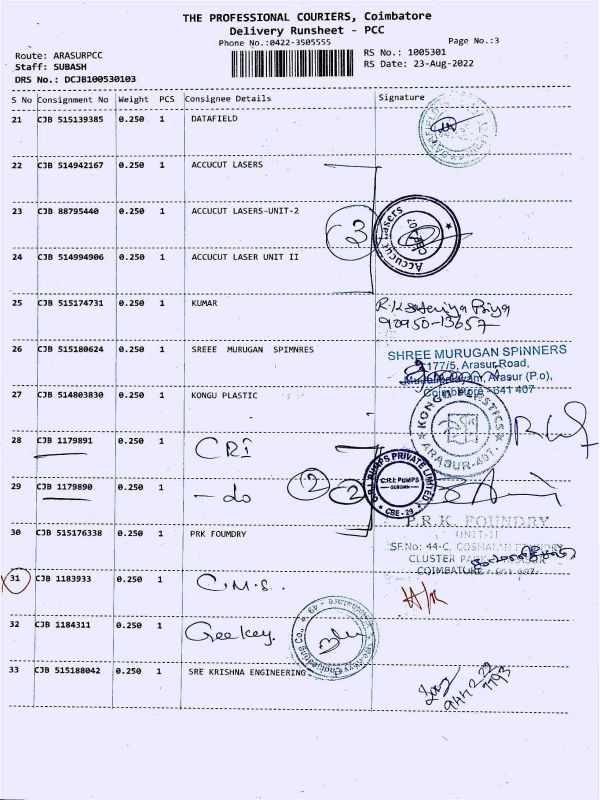 THE PROFESSIONAL COURIERS, Coimbatore
Delivery Runsheet - PCC
Phone No.:0422-3505555
Page No.:3
Route: ARASURPCC
RS No.: 1005301
Staff: SUBASH
RS Date: 23-Aug-2022
DRS No.: DCJB100530103
S No Consignment No Weight PCS Consignee Details Signature
21 CJB 515139385 0.250 1 DATAFIELD
22 CJB 514942167 0.250 1 ACCUCUT LASERS
23 CJB 88795440 0.250 1 ACCUCUT LASERS-UNIT-2
3
Accucut Lasers
24 CJB 514994906 0.250 1 ACCUCUT LASER UNIT II
25 CJB 515174731 0.250 1 KUMAR
Priya
90950-13657
26 CJB 515180624 0.250 1 SREEE MURUGAN SPIMNRES
SHREE MURUGAN SPINNERS
177/5, Arasur Road,
Arasur (P.o),
Coimbatore - 641 407
27 CJB 514803830 0.250 1 KONGU PLASTIC
KONGU PLASTICS
ARASUR-407.
28 CJB 1179891 0.250 1 CRI
29 CJB 1179890 0.250 1 - do
2 2
C.R.I. PUMPS PRIVATE LIMITED
C.R.I. PUMPS
CBE - 29
30 CJB 515176338 0.250 1 PRK FOUMDRY
P.R.K. FOUNDRY
UNIT-II
SF.No: 44-C,
CLUSTER
COIMBATORE
31 CJB 1183933 0.250 1 C.M.S.
32 CJB 1184311 0.250 1 Geekey.
33 CJB 515188042 0.250 1 SRE KRISHNA ENGINEERING